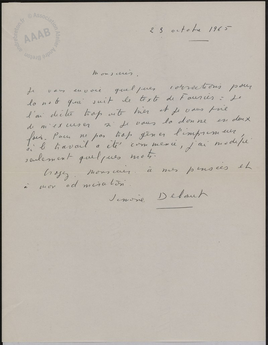 AAAB
23 octobre 1965
Monsieur,
Je vous envoie quelques corrections pour
la note que suit le texte de Fourier : je
l'ai dictée trop vite hier et je vous prie
de m'excuser si je vous la donne en deux
fois. Pour ne pas trop gêner l'imprimeur,
si le travail a été commencé, j'ai modifié
seulement quelques mots.
Croyez monsieur à mes pensées et
à mon admiration
Simone Debout